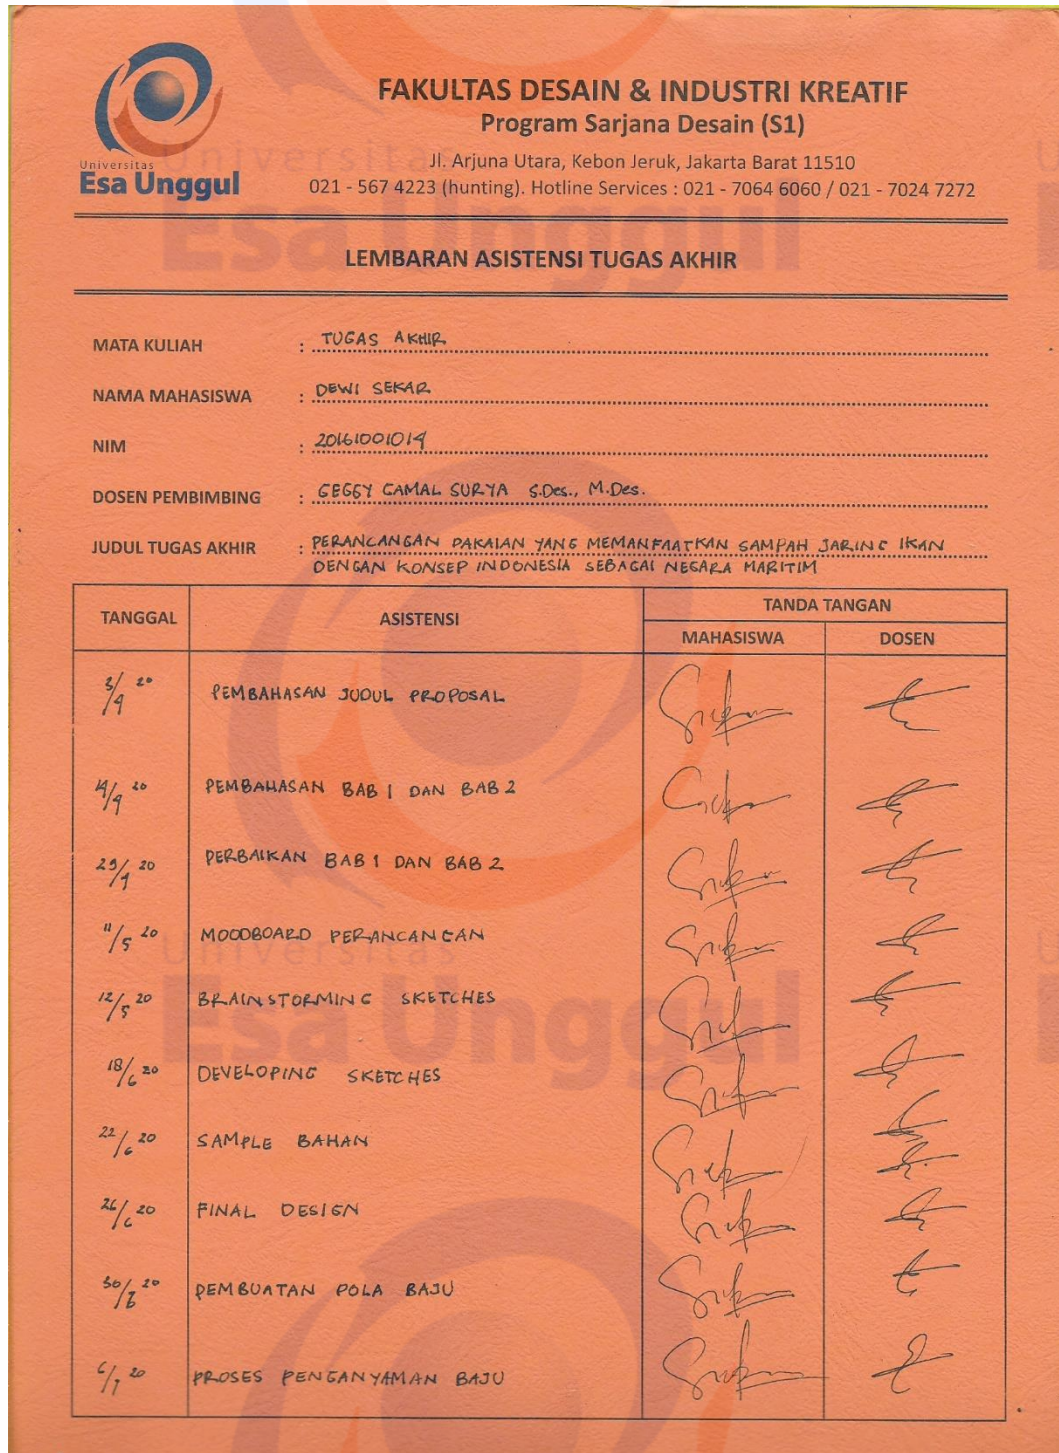 Universitas
Esa Unggul
FAKULTAS DESAIN & INDUSTRI KREATIF
Program Sarjana Desain (S1)
Jl. Arjuna Utara, Kebon Jeruk, Jakarta Barat 11510
021 - 567 4223 (hunting). Hotline Services : 021 - 7064 6060 / 021 - 7024 7272
LEMBARAN ASISTENSI TUGAS AKHIR
MATA KULIAH : TUGAS AKHIR
NAMA MAHASISWA : DEWI SEKAR
NIM : 20161001014
DOSEN PEMBIMBING : GEGGY GAMAL SURYA S.Des., M.Des.
JUDUL TUGAS AKHIR : PERANCANGAN PAKAIAN YANG MEMANFAATKAN SAMPAH JARING IKAN
DENGAN KONSEP INDONESIA SEBAGAI NEGARA MARITIM
TANGGAL ASISTENSI TANDA TANGAN
MAHASISWA DOSEN
3/4 20 PEMBAHASAN JUDUL PROPOSAL
14/4 20 PEMBAHASAN BAB 1 DAN BAB 2
29/4 20 PERBAIKAN BAB 1 DAN BAB 2
11/5 20 MOODBOARD PERANCANGAN
12/5 20 BRAINSTORMING SKETCHES
18/6 20 DEVELOPING SKETCHES
22/6 20 SAMPLE BAHAN
26/6 20 FINAL DESIGN
30/6 20 PEMBUATAN POLA BAJU
6/7 20 PROSES PENGANYAMAN BAJU
Universitas
Esa Unggul
Universitas
Esa Unggul